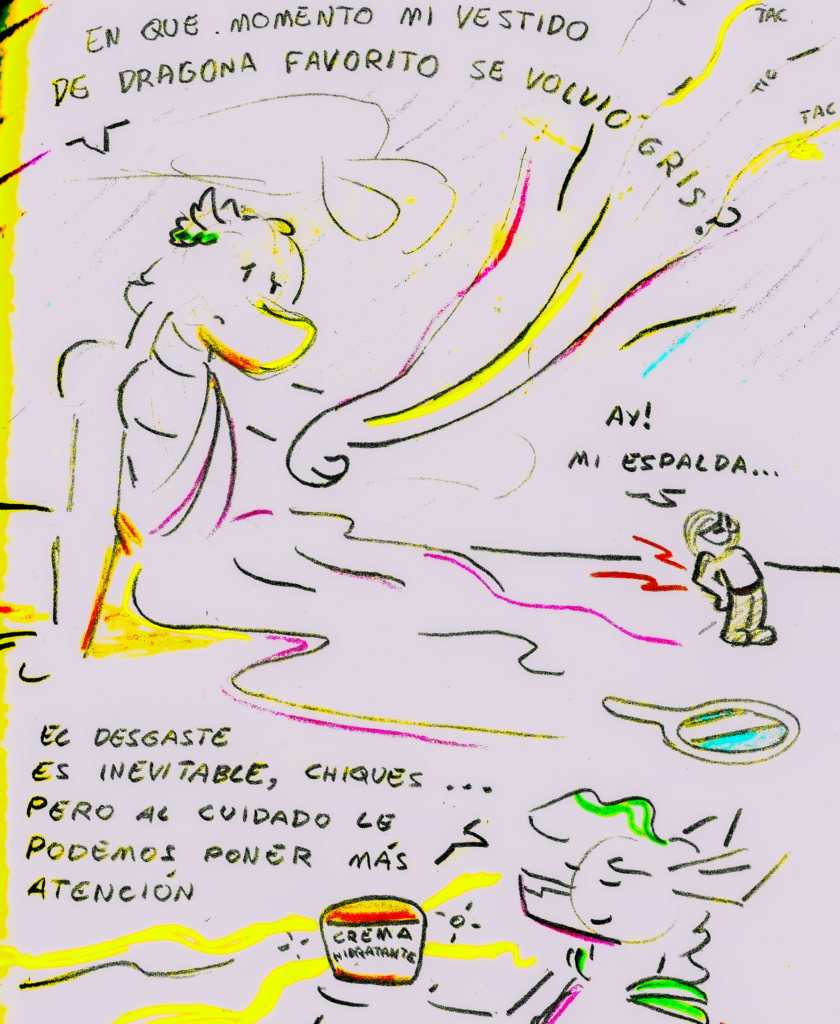 EN QUE MOMENTO MI VESTIDO
DE DRAGONA FAVORITO SE VOLVIO GRIS?
TAC
TIC
TAC
AY!
MI ESPALDA...
EL DESGASTE
ES INEVITABLE, CHIQUES ...
PERO AL CUIDADO LE
PODEMOS PONER MÁS
ATENCIÓN
CREMA
HIDRATANTE